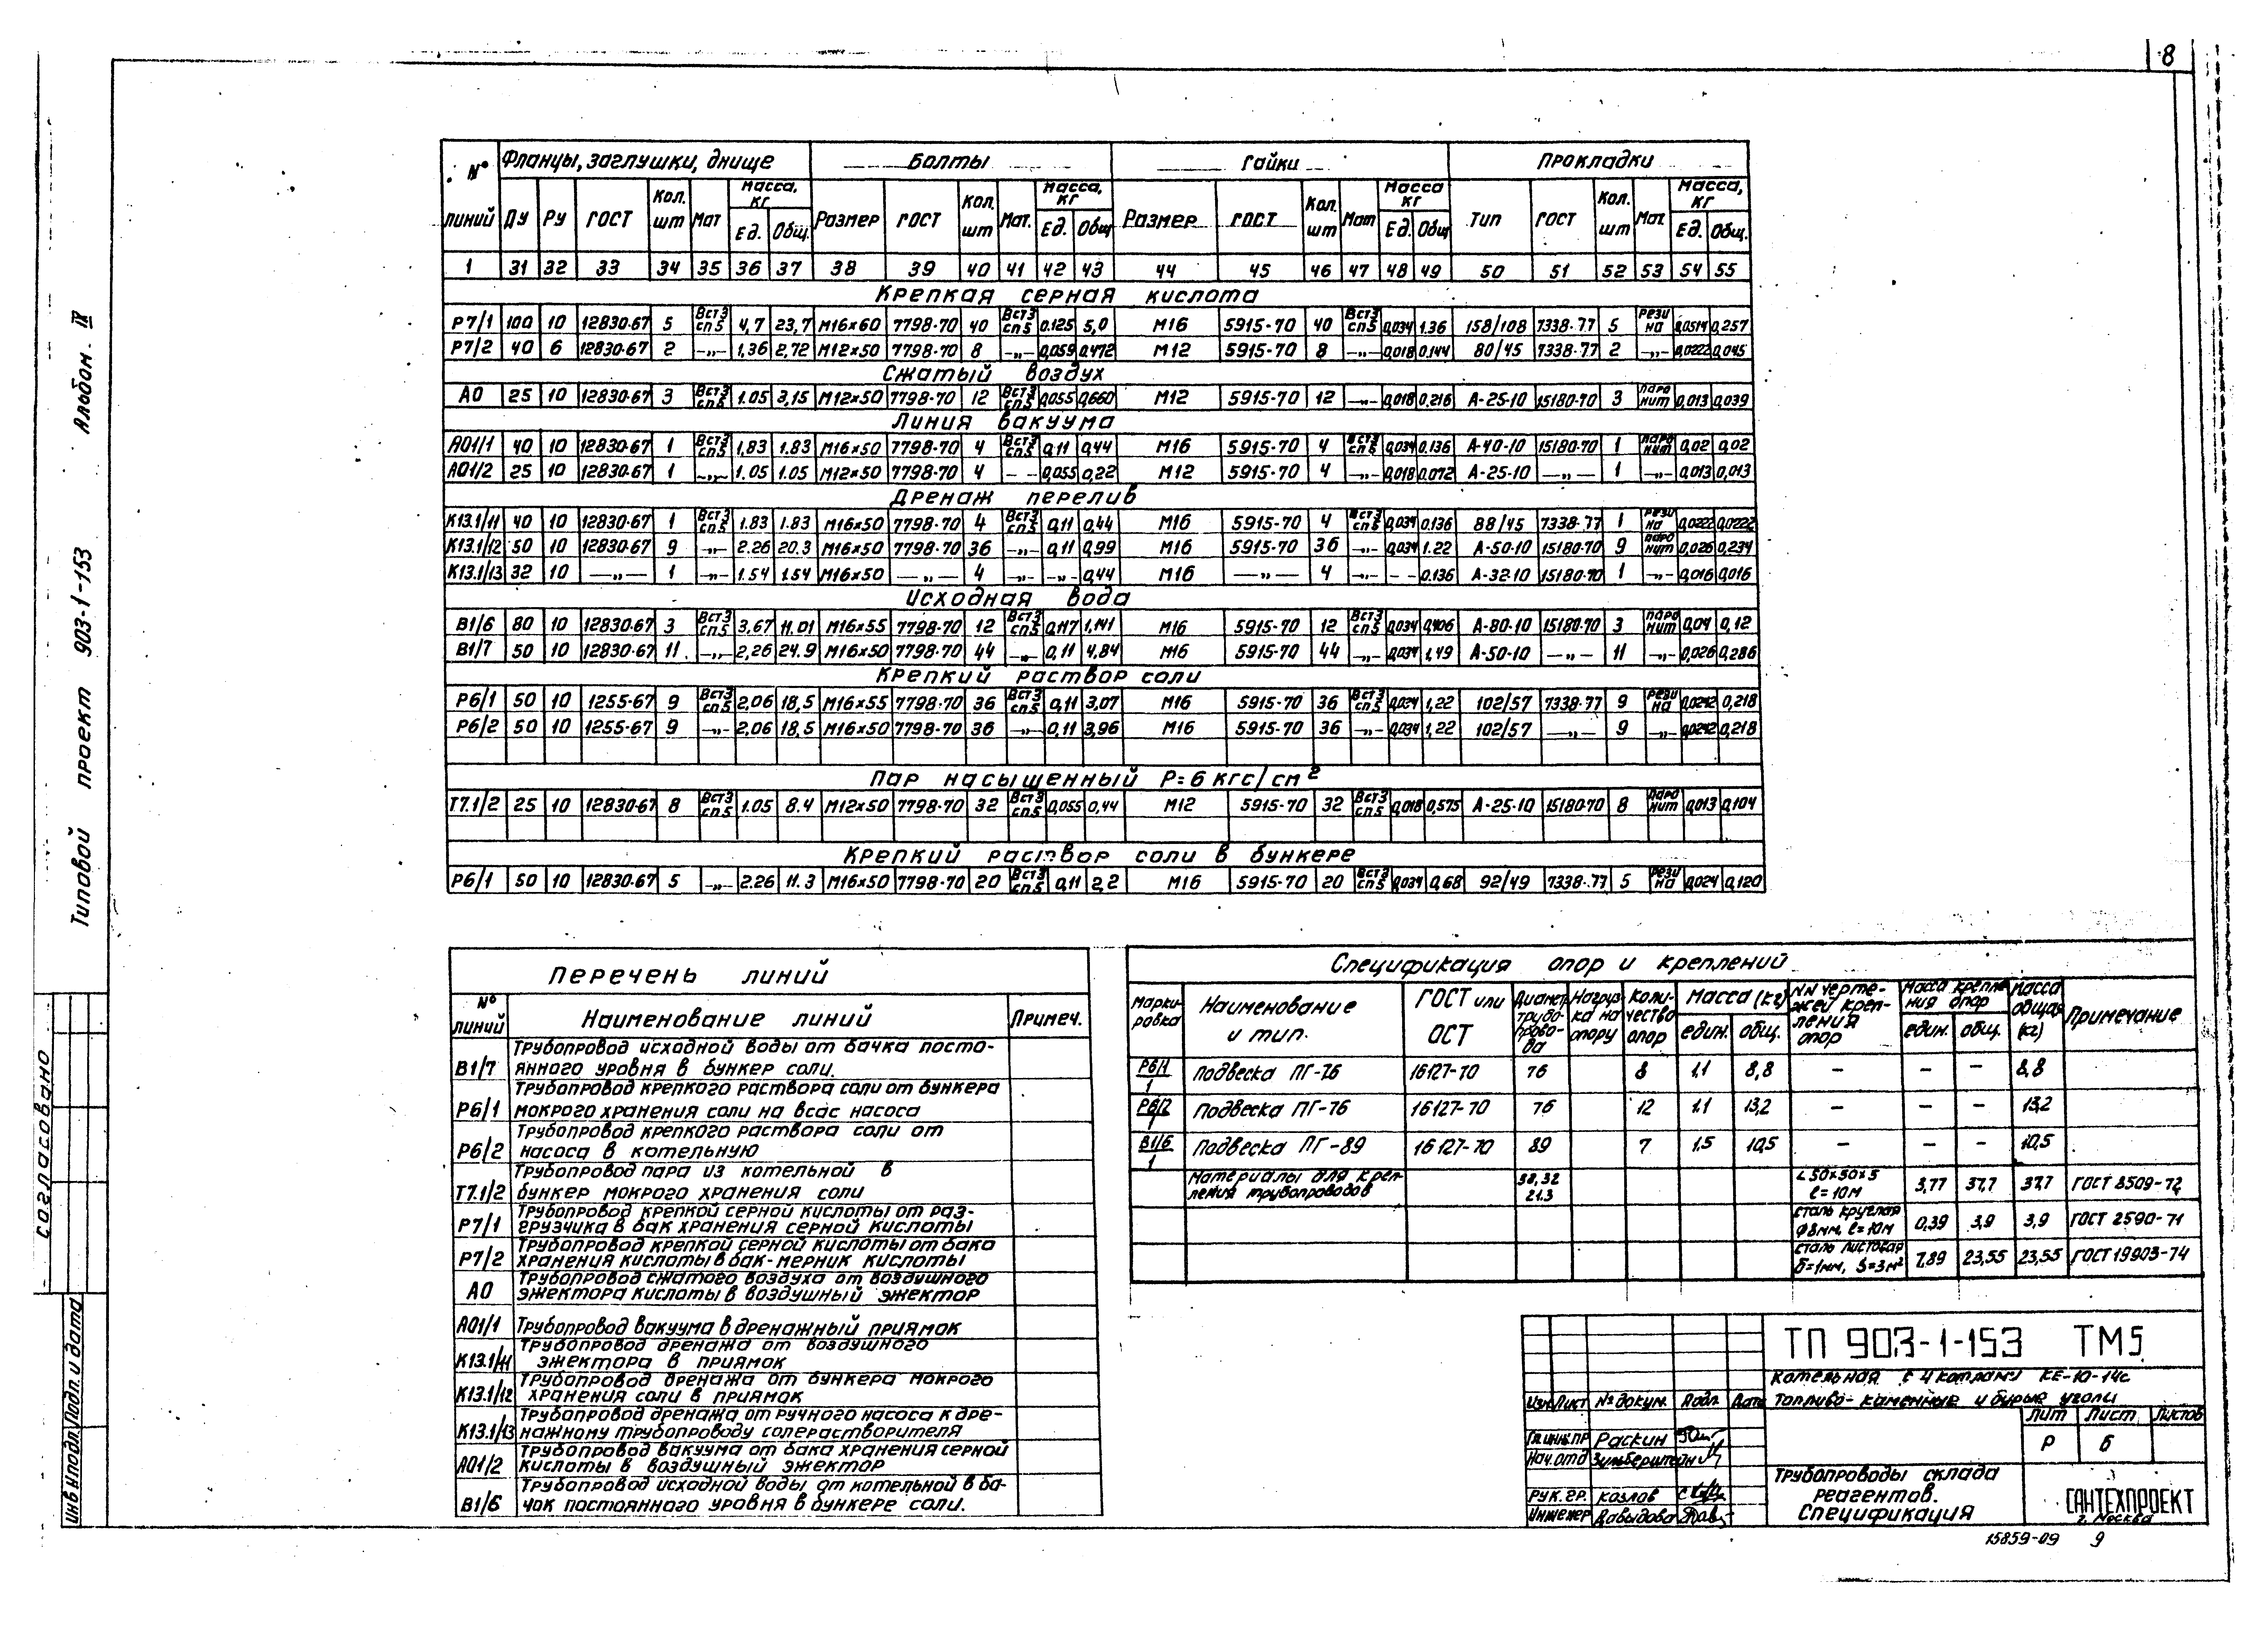 8
Типовой проект 903-1-153 Альбом IX
Согласовано
Инв.№подл. Подп. и дата
№ линий Фланцы, заглушки, днище Болты Гайки Прокладки
Ду Ру ГОСТ Кол. шт Мат Масса, кг Ед. Общ. Размер ГОСТ Кол. шт Мат. Масса, кг Ед. Общ Размер ГОСТ Кол. шт Мат Масса кг Ед. Общ Тип ГОСТ Кол. шт Мат. Масса, кг Ед. Общ.
1 31 32 33 34 35 36 37 38 39 40 41 42 43 44 45 46 47 48 49 50 51 52 53 54 55
Крепкая серная кислота
Р7/1 100 10 12830-67 5 Вст3 сп5 4,7 23,7 М16х60 7798-70 40 Вст3 сп5 0.125 5,0 М16 5915-70 40 Вст3 сп5 0,034 1.36 158/108 7338-77 5 Рези на 0,0514 0,257
Р7/2 40 6 12830-67 2 —„— 1,36 2,72 М12х50 7798-70 8 —„— 0,059 0,472 М12 5915-70 8 —„— 0,018 0.144 80/45 7338-77 2 —„— 0,0222 0,045
Сжатый воздух
А0 25 10 12830-67 3 Вст3 сп5 1.05 3,15 М12х50 7798-70 12 Вст3 сп5 0,055 0,660 М12 5915-70 12 —„— 0,018 0.216 А-25-10 15180-70 3 паро нит 0,013 0,039
Линия вакуума
А01/1 40 10 12830-67 1 Вст3 сп5 1,83 1.83 М16х50 7798-70 4 Вст3 сп5 0,11 0,44 М16 5915-70 4 Вст3 сп5 0,034 0.136 А-40-10 15180-70 1 паро нит 0,02 0,02
А01/2 25 10 12830-67 1 —„— 1.05 1.05 М12х50 7798-70 4 — — 0,055 0,22 М12 5915-70 4 —„— 0,018 0.072 А-25-10 —„— 1 —„— 0,013 0,013
Дренаж перелив
К13.1/11 40 10 12830-67 1 Вст3 сп5 1.83 1.83 М16х50 7798-70 4 Вст3 сп5 0,11 0,44 М16 5915-70 4 Вст3 сп5 0,034 0.136 88/45 7338-77 1 рези на 0,0222 0,0222
К13.1/12 50 10 12830-67 9 —„— 2.26 20.3 М16х50 7798-70 36 —„— 0,11 0,99 М16 5915-70 36 —„— 0,034 1.22 А-50-10 15180-70 9 паро нит 0,026 0,234
К13.1/13 32 10 —„— 1 —„— 1.54 1.54 М16х50 —„— 4 —„— —„— 0,44 М16 —„— 4 —„— — — 0.136 А-32-10 15180-70 1 —„— 0,016 0,016
Исходная вода
В1/6 80 10 12830-67 3 Вст3 сп5 3,67 11.01 М16х55 7798-70 12 Вст3 сп5 0,117 1,141 М16 5915-70 12 Вст3 сп5 0,034 0,406 А-80-10 15180-70 3 паро нит 0,04 0,12
В1/7 50 10 12830-67 11. —„— 2,26 24.9 М16х50 7798-70 44 —„— 0,11 4,84 М16 5915-70 44 —„— 0,034 1,49 А-50-10 —„— 11 —„— 0,026 0,286
Крепкий раствор соли
Р6/1 50 10 1255-67 9 Вст3 сп5 2,06 18,5 М16х55 7798-70 36 Вст3 сп5 0,11 3,07 М16 5915-70 36 Вст3 сп5 0,034 1,22 102/57 7338-77 9 рези на 0,0242 0,218
Р6/2 50 10 1255-67 9 —„— 2,06 18,5 М16х50 7798-70 36 —„— 0,11 3,96 М16 5915-70 36 —„— 0,034 1,22 102/57 —„— 9 —„— 0,0242 0,218
Пар насыщенный Р=6 кгс/см²
Т7.1/2 25 10 12830-67 8 Вст3 сп5 1.05 8.4 М12х50 7798-70 32 Вст3 сп5 0,055 0,44 М12 5915-70 32 Вст3 сп5 0,018 0,575 А-25-10 15180-70 8 паро нит 0,013 0,104
Крепкий раствор соли в бункере
Р6/1 50 10 12830-67 5 —„— 2.26 11.3 М16х50 7798-70 20 Вст3 сп5 0,11 2,2 М16 5915-70 20 Вст3 сп5 0,034 0,68 92/49 7338-77 5 рези на 0,024 0,120
Перечень линий
№ линий Наименование линий Примеч.
В1/7 Трубопровод исходной воды от бачка посто-
янного уровня в бункер соли.
Р6/1 Трубопровод крепкого раствора соли от бункера
мокрого хранения соли на всас насоса
Р6/2 Трубопровод крепкого раствора соли от
насоса в котельную
Т7.1/2 Трубопровод пара из котельной в
бункер мокрого хранения соли
Р7/1 Трубопровод крепкой серной кислоты от раз-
грузчика в бак хранения серной кислоты
Р7/2 Трубопровод крепкой серной кислоты от бака
хранения кислоты в бак-мерник кислоты
А0 Трубопровод сжатого воздуха от воздушного
эжектора кислоты в воздушный эжектор
А01/1 Трубопровод вакуума в дренажный приямок
К13.1/11 Трубопровод дренажа от воздушного
эжектора в приямок
К13.1/12 Трубопровод дренажа от бункера мокрого
хранения соли в приямок
К13.1/13 Трубопровод дренажа от ручного насоса к дре-
нажному трубопроводу солерастворителя
А01/2 Трубопровод вакуума от бака хранения серной
кислоты в воздушный эжектор
В1/6 Трубопровод исходной воды от котельной в ба-
чок постоянного уровня в бункере соли.
Спецификация опор и креплений
Марки-ровка Наименование и тип. ГОСТ или ОСТ Диамет. трубо-прово-да Нагруз-ка на опору Коли-чество опор Масса (кг) един. общ. NN черте-жей креп-ления опор Масса крепле ния опор един. общ. Масса общая (кг) Примечание
Р6/1 1 Подвеска ПГ-76 16127-70 76 8 1.1 8,8 — — — 8,8
Р6/2 1 Подвеска ПГ-76 16127-70 76 12 1.1 13,2 — — — 13,2
В1/6 1 Подвеска ПГ-89 16127-70 89 7 1.5 10,5 — — — 10,5
Материалы для креп-ления трубопроводов 38,32 21.3 ∠50×50×5 ℓ=10м 3,77 37,7 37,7 ГОСТ 8509-72
Сталь круглая ф8мм, ℓ=10м 0,39 3,9 3,9 ГОСТ 2590-71
Сталь листовая δ=1мм, S=3м² 7,89 23,55 23,55 ГОСТ 19903-74
ТП 903-1-153 ТМ5
Котельная с 4 котлами КЕ-10-14с
Топливо-каменные и бурые угли
Изм Лист № докум. Подп. Дата
Лит Лист Листов
Р 6
Гл.инж.пр Раскин
Нач.отд Зильберштейн
Рук.гр. Козлов
Инженер Давыдова
Трубопроводы склада
реагентов.
Спецификация
САНТЕХПРОЕКТ
г. Москва
15859-09 9